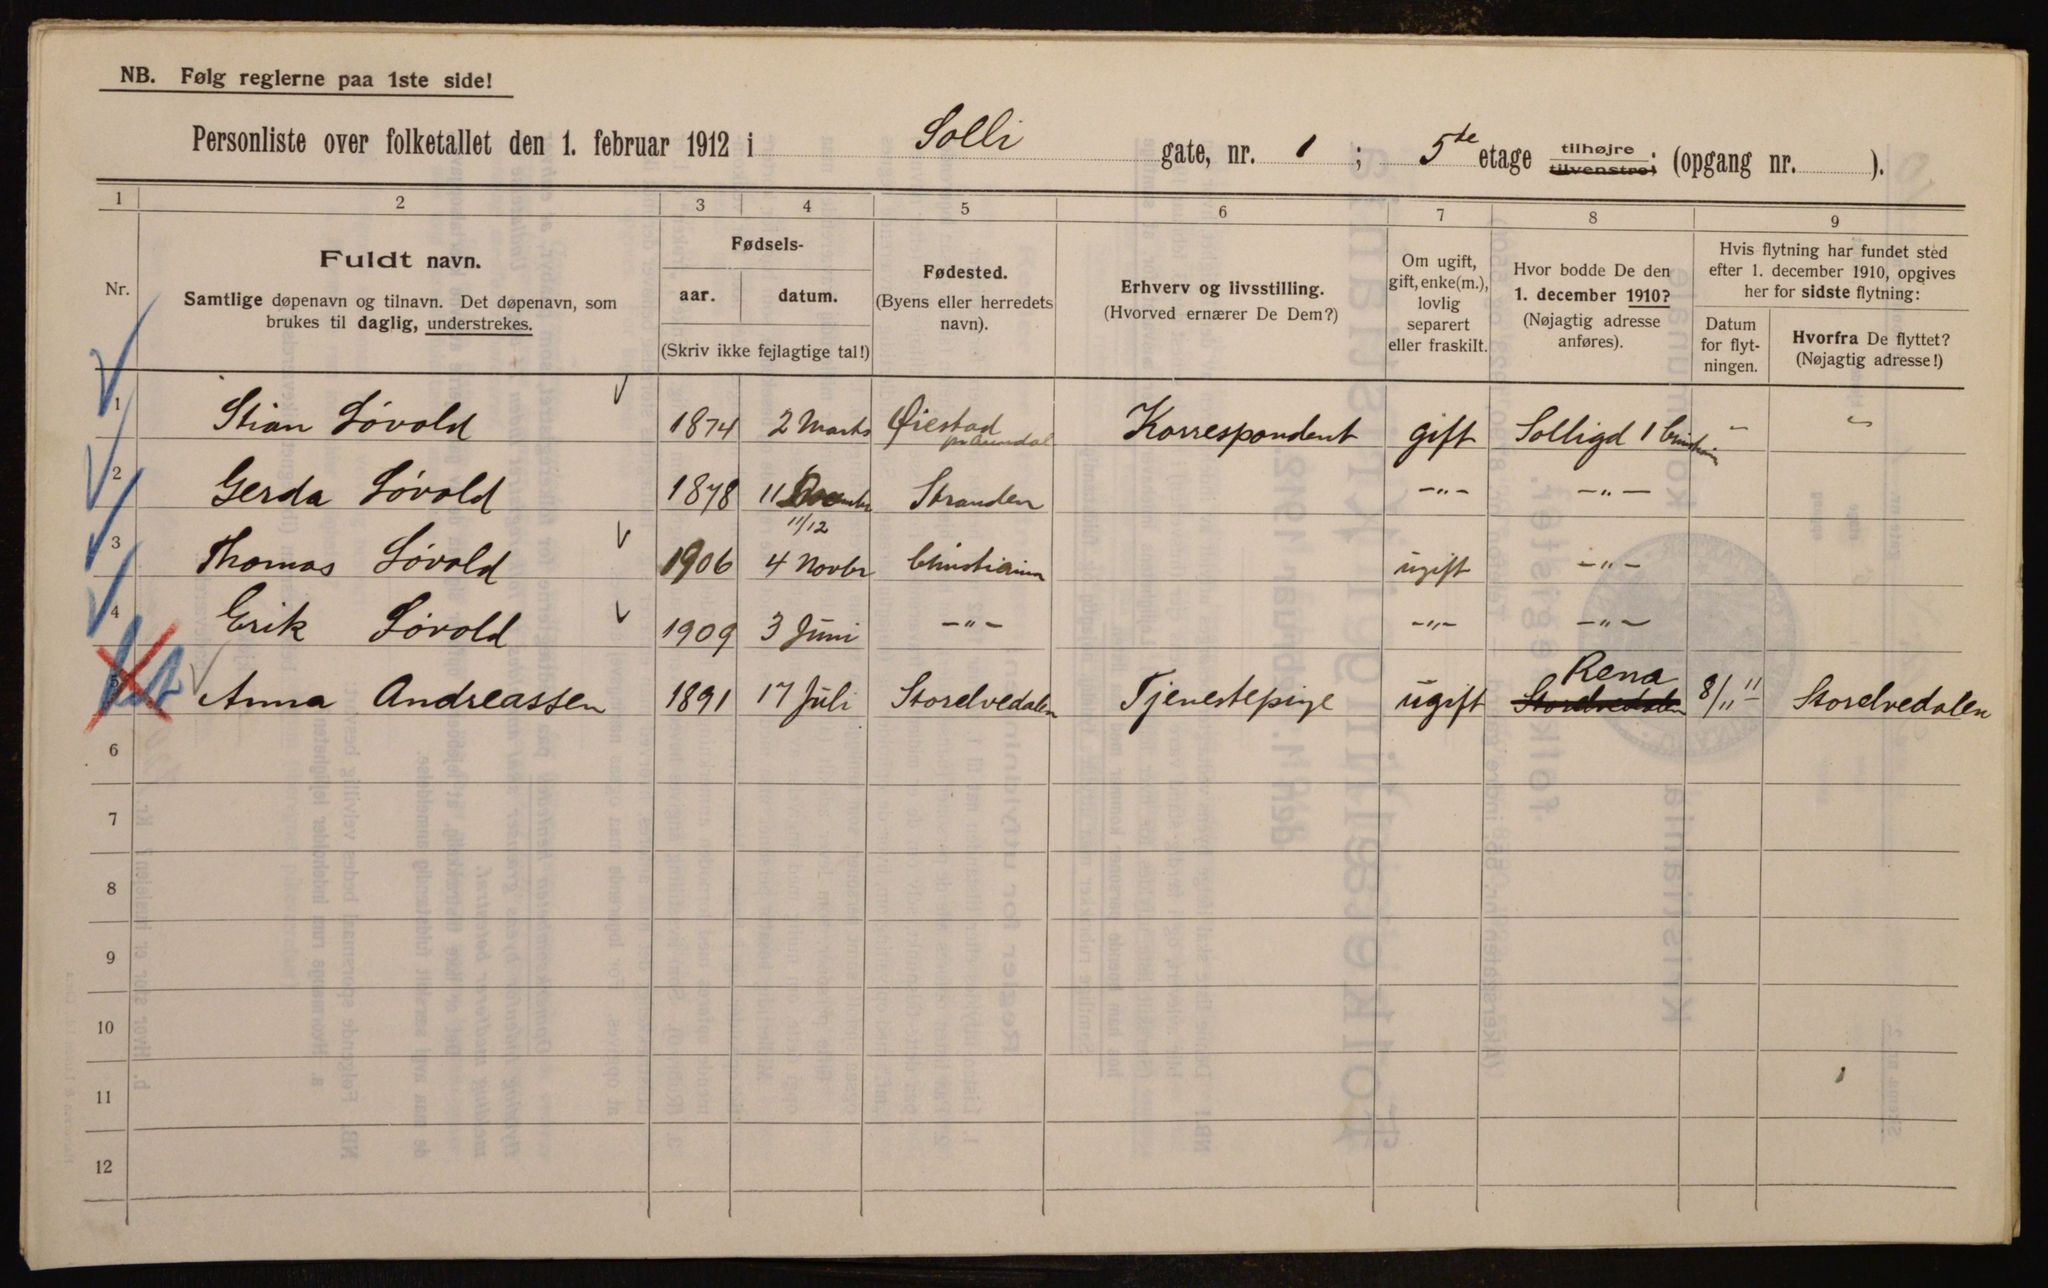 NB. Følg reglerne paa 1ste side!
Personliste over folketallet den 1. februar 1912 i Solli gate, nr. 1 ; 5te etage tilhøjre tilvenstre; (opgang nr. ).
1 2 3 4 5 6 7 8 9
Nr.
Fuldt navn.
Samtlige døpenavn og tilnavn. Det døpenavn, som
brukes til daglig, understrekes.
Fødsels-
aar. datum.
(Skriv ikke fejlagtige tal!)
Fødested.
(Byens eller herredets
navn).
Erhverv og livsstilling.
(Hvorved ernærer De Dem?)
Om ugift,
gift, enke(m.),
lovlig
separert
eller fraskilt.
Hvor bodde De den
1. december 1910?
(Nøjagtig adresse
anføres).
Hvis flytning har fundet sted
efter 1. december 1910, opgives
her for sidste flytning:
Datum
for flyt-
ningen.
Hvorfra De flyttet?
(Nøjagtig adresse!)
1 Stian Løvold 1874 2 Marts Øiestad Korrespondent gift Solligd 1 " "
pr Arendal
2 Gerda Løvold 1878 11 Stranden -"- -"-
11/12
3 Thomas Løvold 1906 4 Novbr Christiania ugift -"-
4 Erik Løvold 1909 3 Juni -"- -"- -"-
Rena
5 Anna Andreassen 1891 17 Juli Storelvedalen Tjenestepige ugift Storelvedalen 8/11 11 Storelvedalen
6
7
8
9
10
11
12